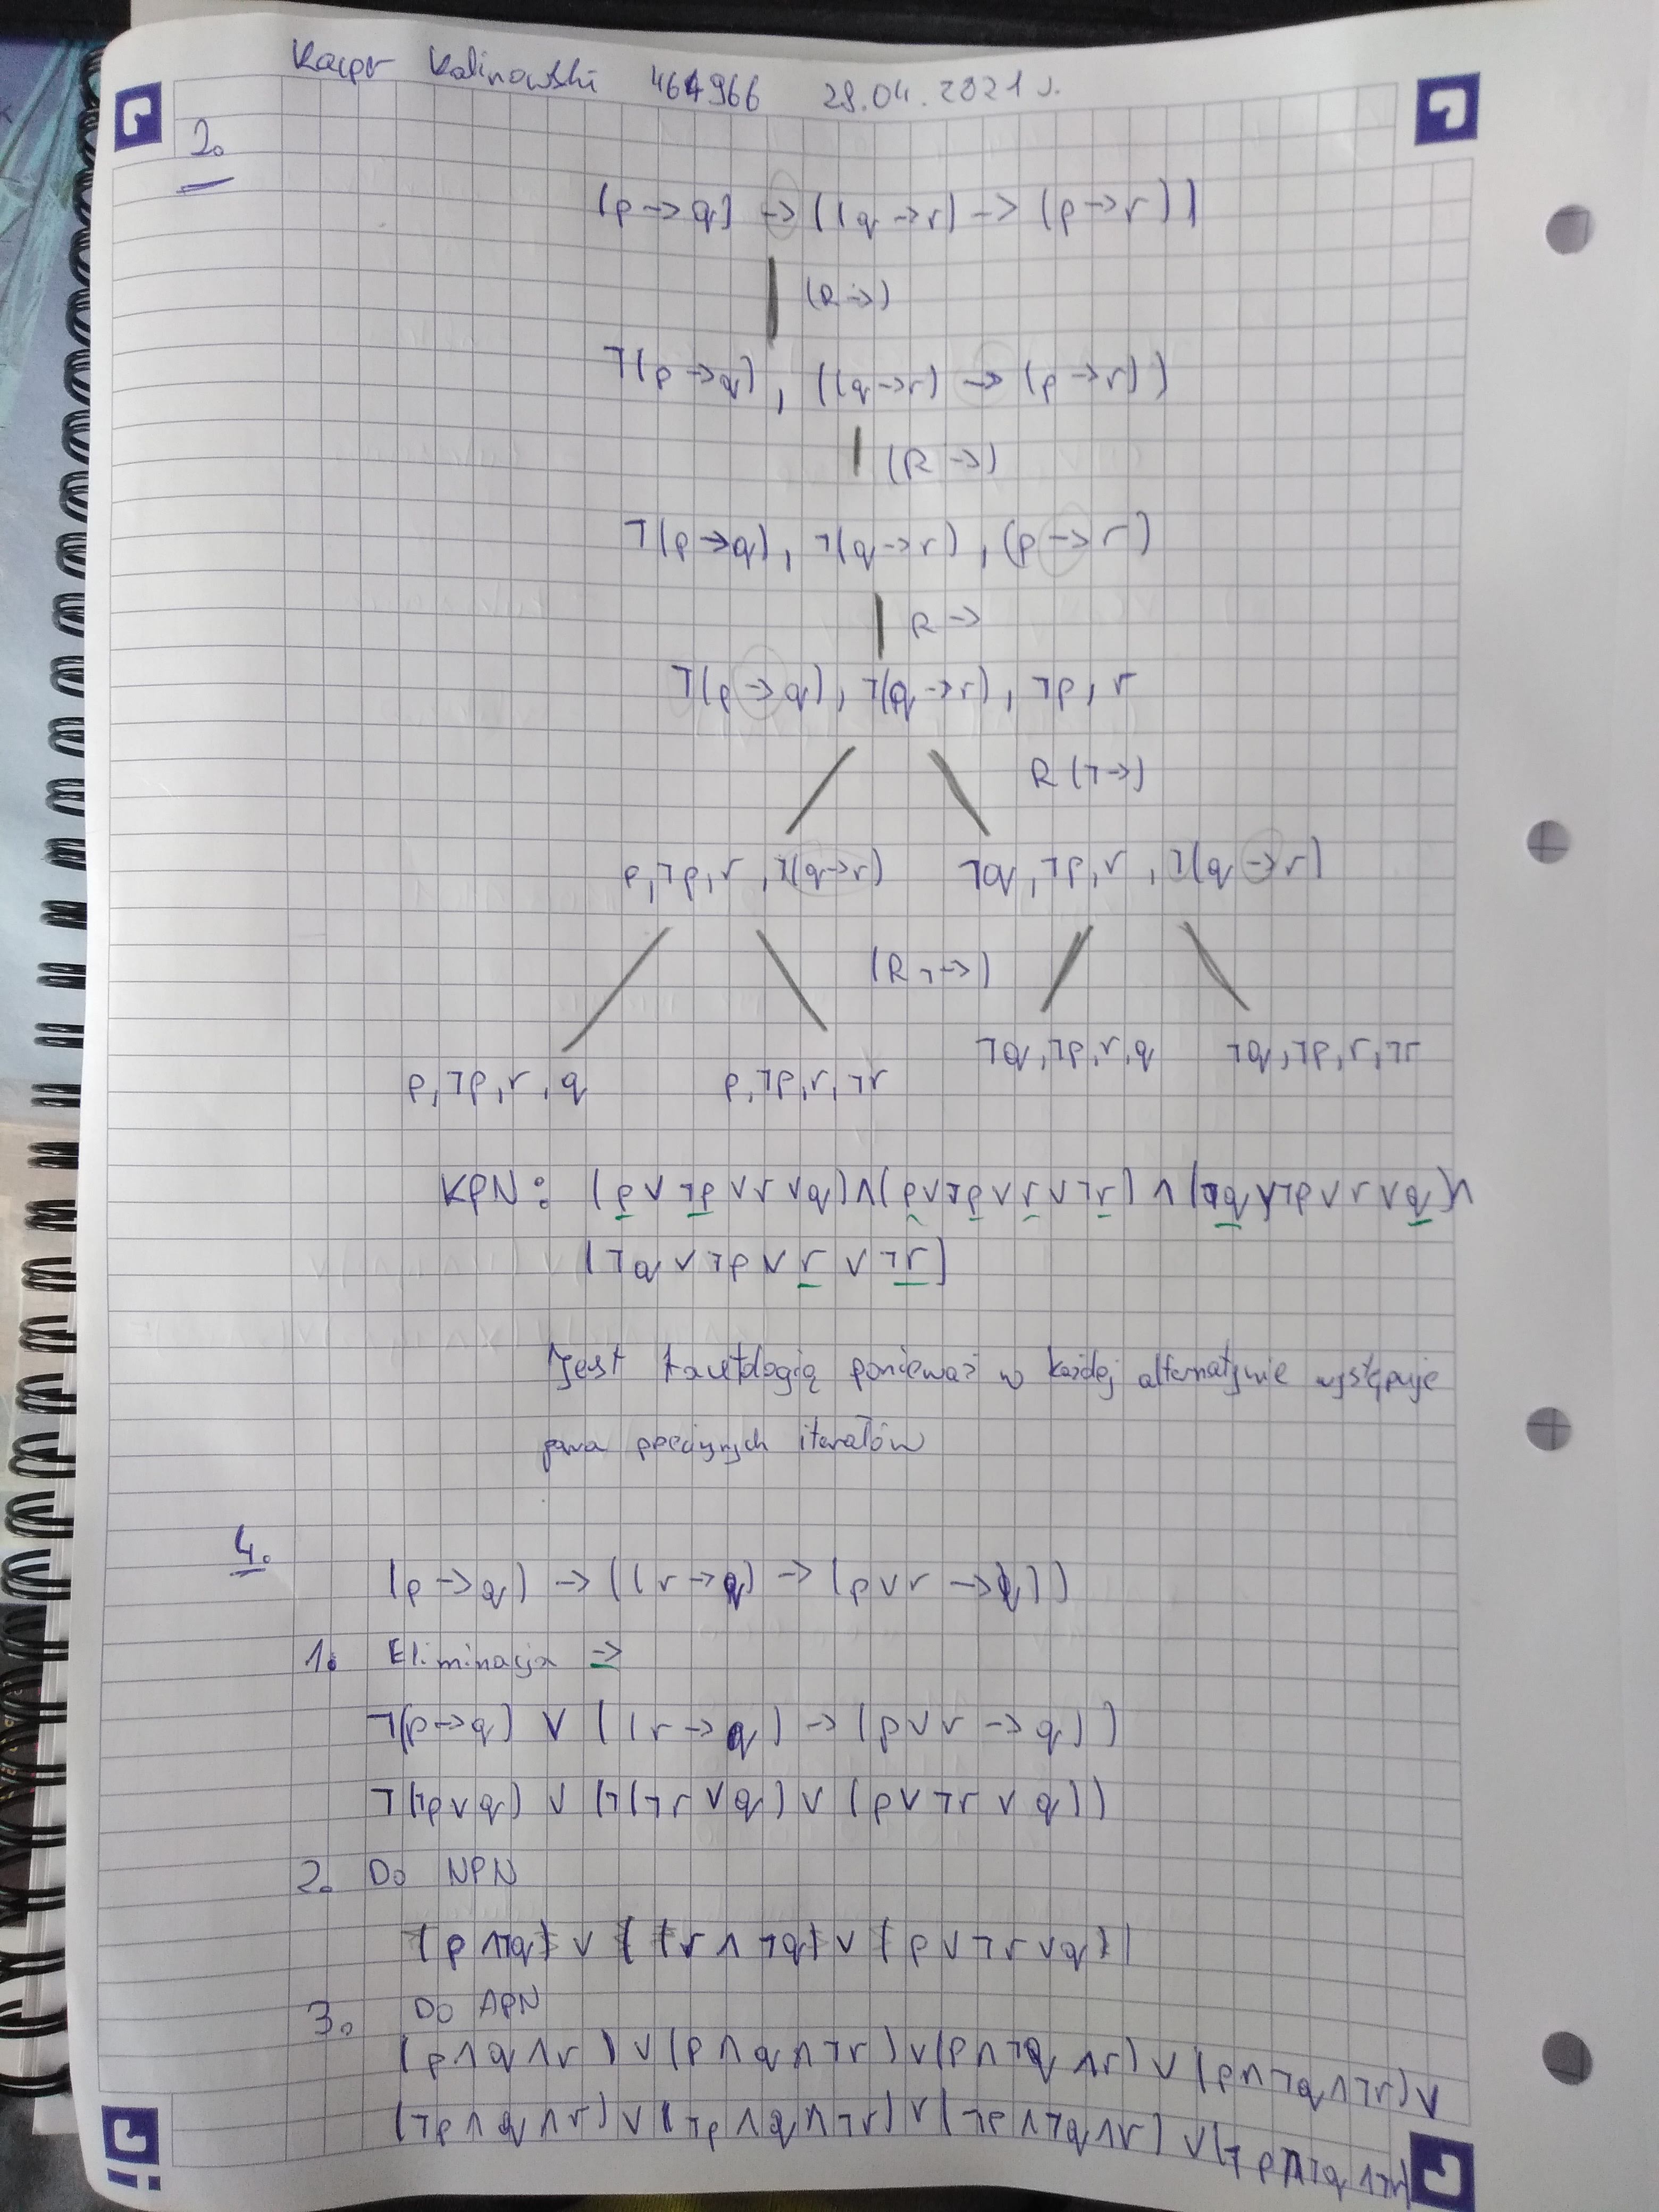 Kacper Kalinowski 464966 28.04.2021 r.
2.
(p → q) → ((q → r) → (p → r))
(R →)
¬(p → q), ((q → r) → (p → r))
(R →)
¬(p → q), ¬(q → r), (p → r)
R →
¬(p → q), ¬(q → r), ¬p, r
R (¬→)
p, ¬p, r, ¬(q → r) ¬q, ¬p, r, ¬(q → r)
(R ¬→)
¬q, ¬p, r, q ¬q, ¬p, r, ¬r
p, ¬p, r, q p, ¬p, r, ¬r
KPN: (p ∨ ¬p ∨ r ∨ q) ∧ (p ∨ ¬p ∨ r ∨ ¬r) ∧ (¬q ∨ ¬p ∨ r ∨ q) ∧
(¬q ∨ ¬p ∨ r ∨ ¬r)
Jest tautologią ponieważ w każdej alternatywie występuje
para przeciwnych literałów
4.
(p → q) → ((r → q) → (p ∨ r → q))
1. Eliminacja →
¬(p → q) ∨ ((r → q) → (p ∨ r → q))
¬(¬p ∨ q) ∨ (¬(¬r ∨ q) ∨ (p ∨ ¬r ∨ q))
2. Do NPN
(p ∧ ¬q) ∨ ((r ∧ ¬q) ∨ (p ∨ ¬r ∨ q))
3. Do APN
(p ∧ q ∧ r) ∨ (p ∧ q ∧ ¬r) ∨ (p ∧ ¬q ∧ r) ∨ (p ∧ ¬q ∧ ¬r) ∨
(¬p ∧ q ∧ r) ∨ (¬p ∧ q ∧ ¬r) ∨ (¬p ∧ ¬q ∧ r) ∨ (¬p ∧ ¬q ∧ ¬r)